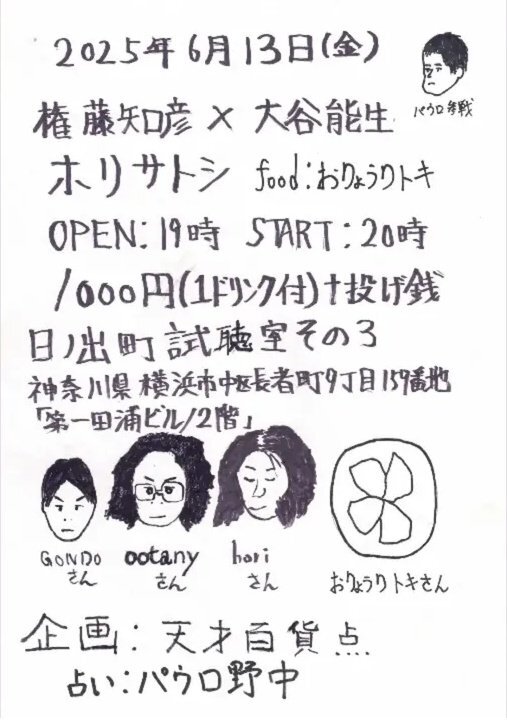 2025年6月13日(金)
パウロ参戦
権藤知彦×大谷能生
ホリサトシ food:おりょうりトキ
OPEN:19時 START:20時
1000円(1ドリンク付)+投げ銭
日ノ出町試聴室その3
神奈川県横浜市中区長者町9丁目159番地
「第一田浦ビル/2階」
GONDOさん
ootanyさん
horiさん
おりょうりトキさん
企画:天才百貨点
占い:パウロ野中